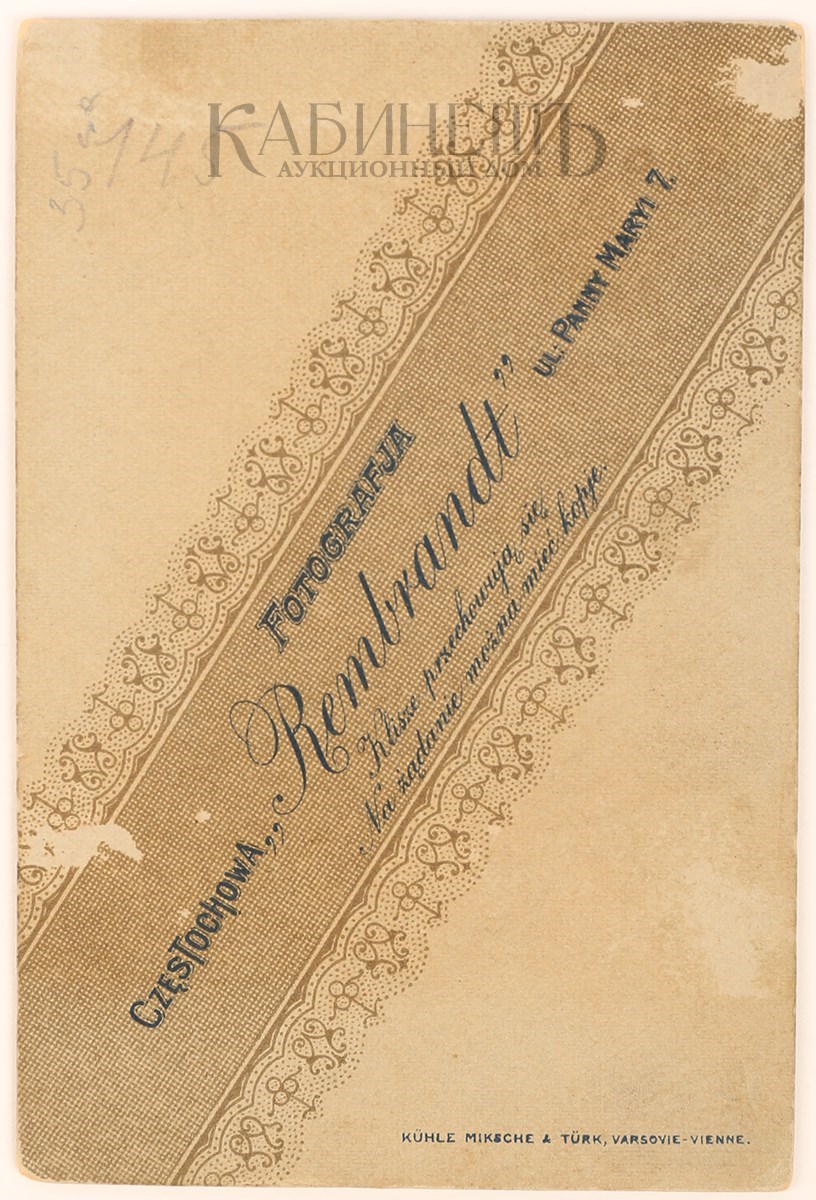 КАБИНЕТЪ
АУКЦИОННЫЙ ДОМ
35
145
FOTOGRAFJA
„Rembrandt”
CZĘSTOCHOWA
UL. PANNY MARYI 7.
Klisze przechowują się
Na żądanie można mieć kopje.
KÜHLE MIKSCHE & TÜRK, VARSOVIE-VIENNE.